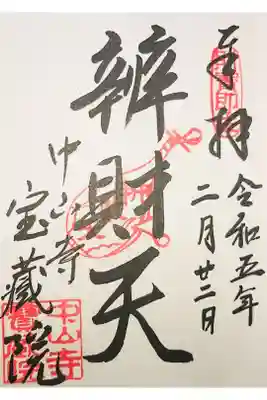 奉拝
令和五年
二月廿二日
辨財天
中山寺
宝蔵院
中山寺